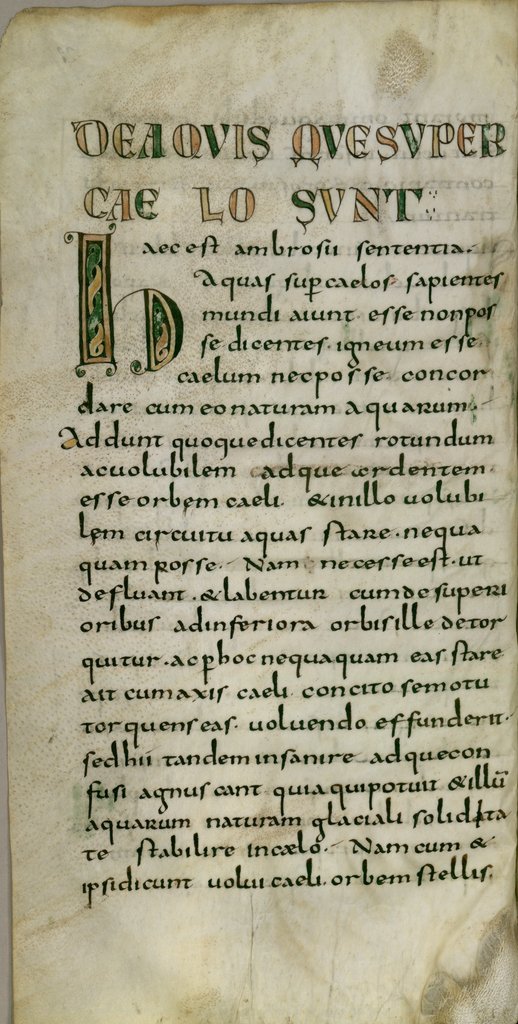 DE AQUIS QUE SUPER
CAE LO SUNT
Haec est ambrosii sententia.
Aquas sup caelos sapientes
mundi aiunt esse non pos
se dicentes. igneum esse.
caelum nec posse concor
dare cum eo naturam aquarum.
Addunt quoque dicentes rotundum
ac volubilem adque ordentem.
esse orbem caeli. & in illo volubi
lem circuitu aquas stare. nequa
quam posse. Nam necesse est. ut
defluant. & labentur cum de superi
oribus ad inferiora orbis ille detor
quitur. ac p hoc nequaquam eas stare
ait cum axis caeli. concito se motu
torquens eas. volvendo effunderit.
sed hii tandem insanire adque con
fusi agnuscant quia qui potuit & illū
aquarum naturam glaciali solidita
te stabilire in caelo. Nam cum &
ipsi dicunt volvi caeli. orbem stellis.